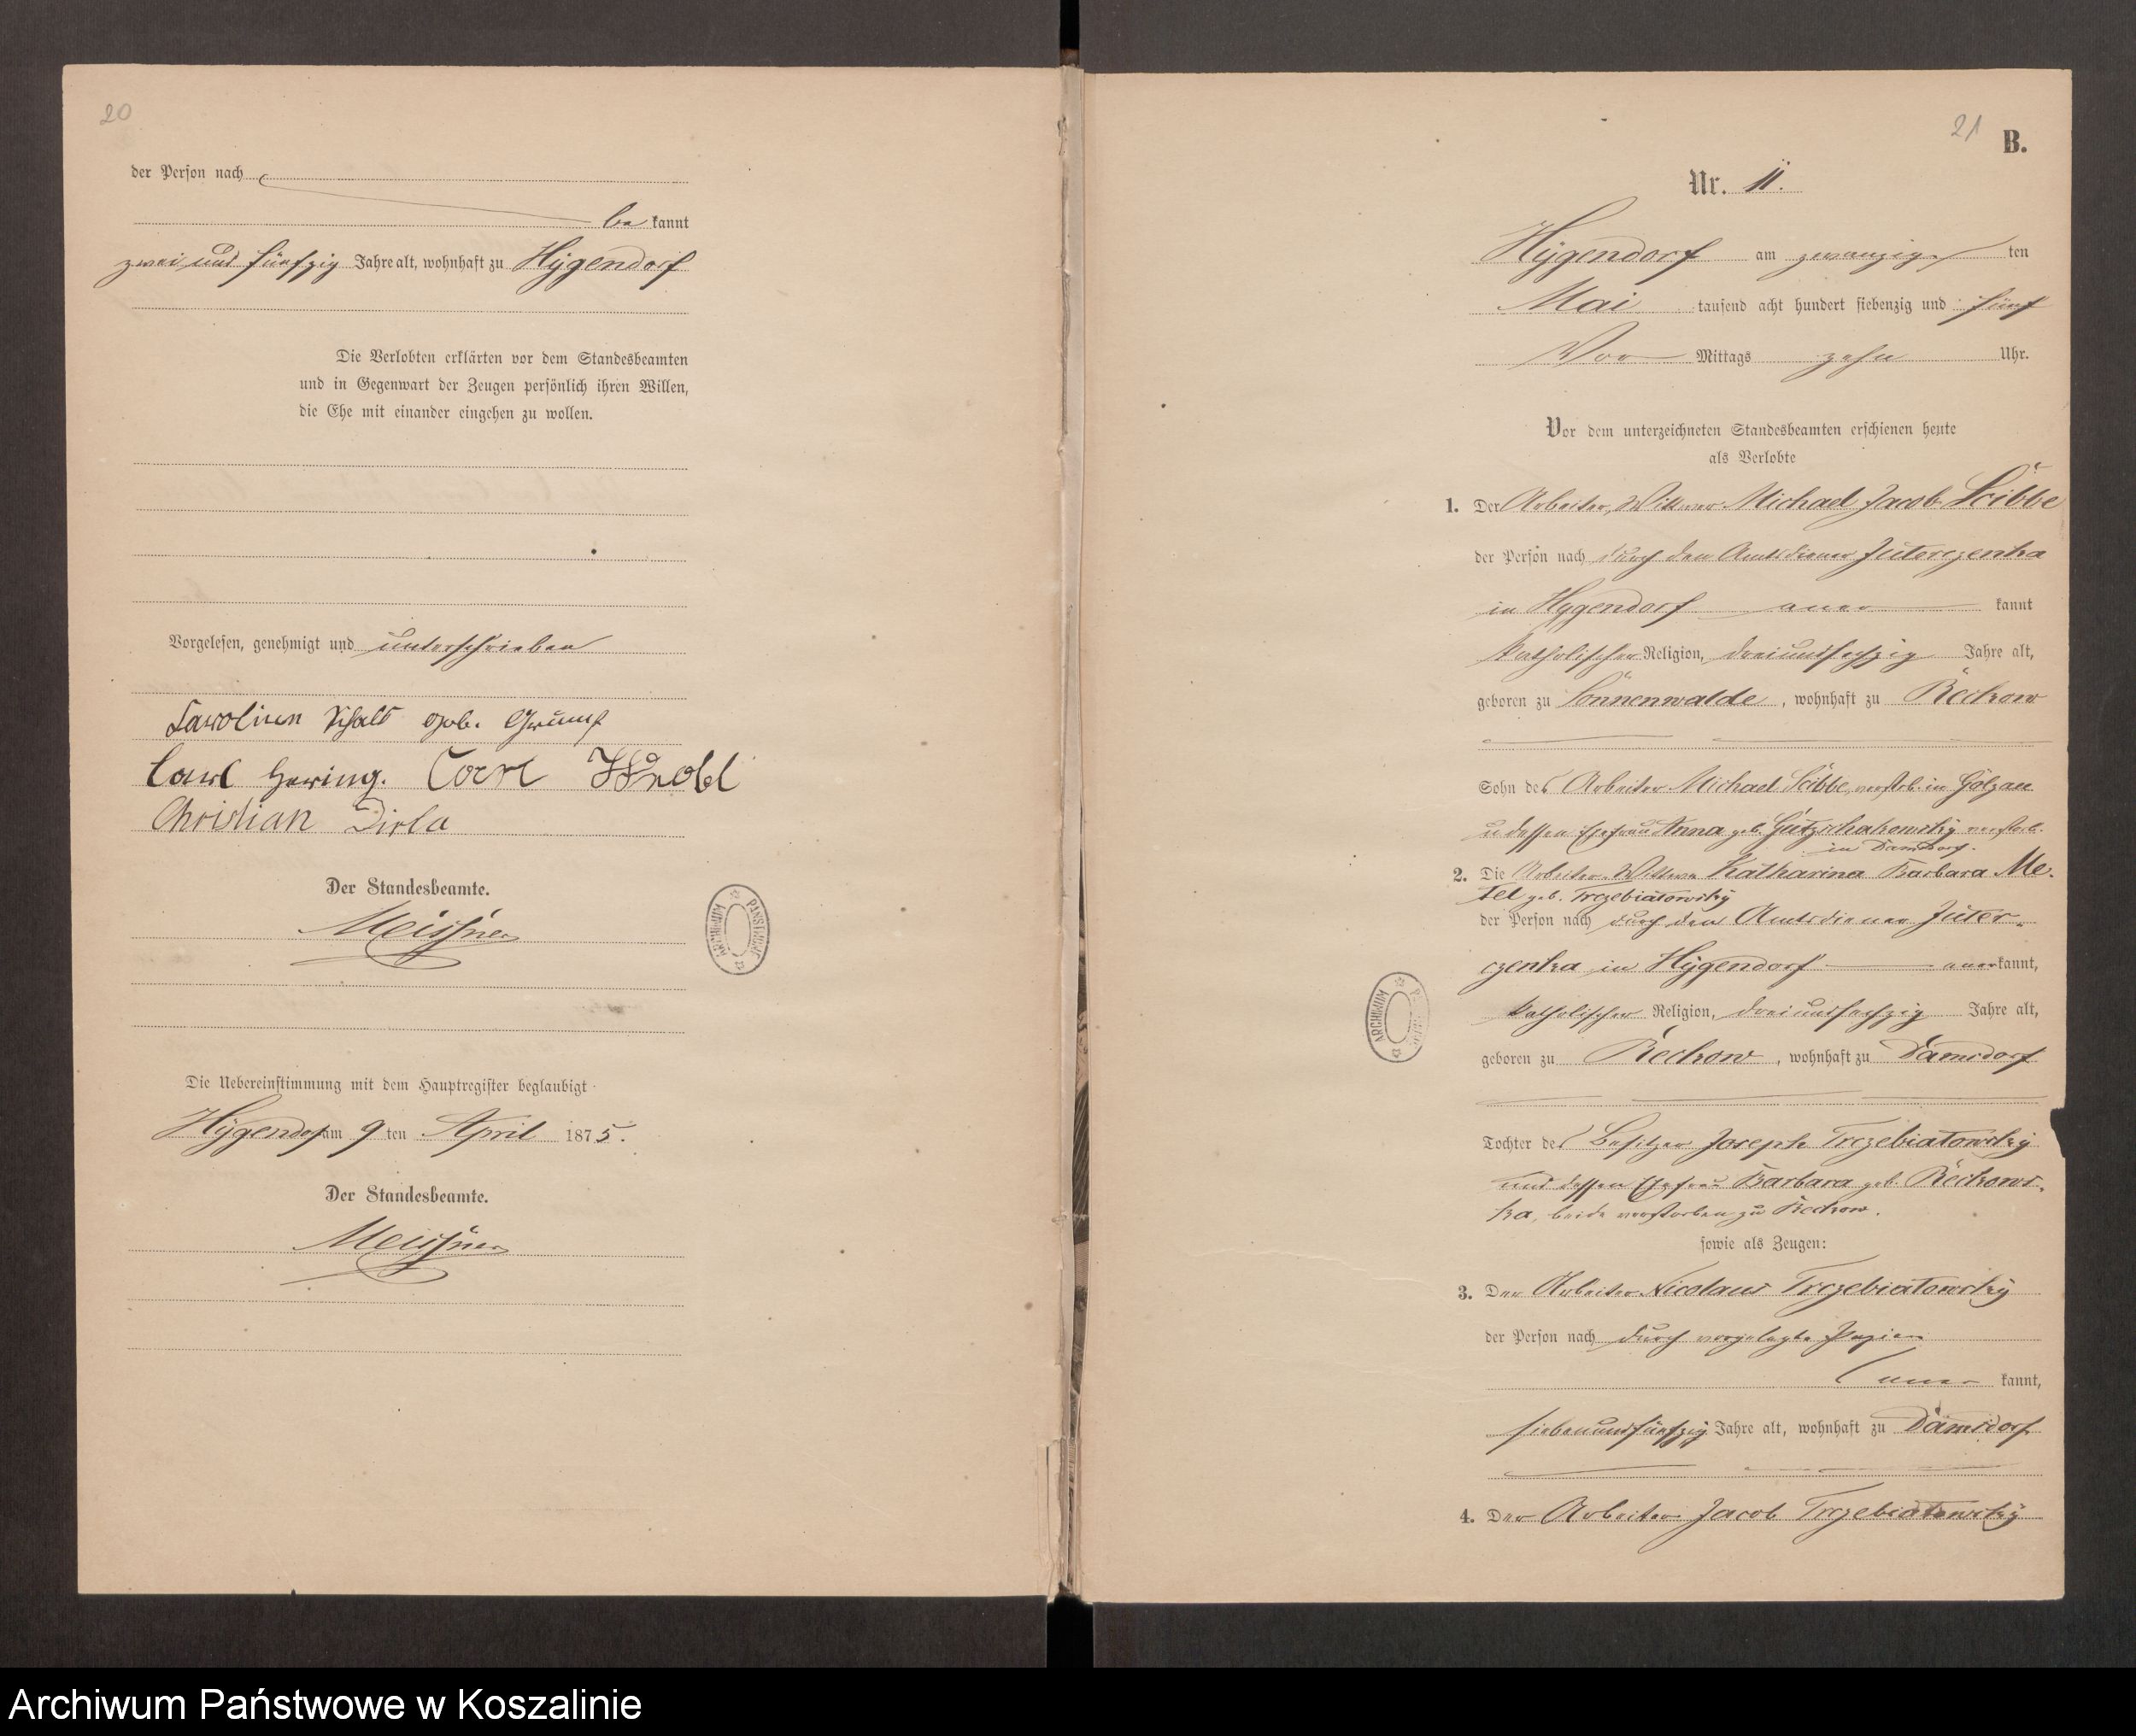 20
der Person nach
be kannt
zwei und fünfzig Jahre alt, wohnhaft zu Hÿgendorf
Die Verlobten erklärten vor dem Standesbeamten
und in Gegenwart der Zeugen persönlich ihren Willen,
die Ehe mit einander eingehen zu wollen.
Vorgelesen, genehmigt und unterschrieben
geb.
Carl Hering. Carl
Christian Dirla
Der Standesbeamte.
Meissner
ARCHIWUM PAŃSTWOWE
Die Uebereinstimmung mit dem Hauptregister beglaubigt
Hÿgendorf am 9 ten April 1875.
Der Standesbeamte.
Meissner
21
B.
Nr. 11.
Hÿgendorf am zwanzigs ten
Mai tausend acht hundert siebenzig und fünf
Vor Mittags zehn Uhr.
Vor dem unterzeichneten Standesbeamten erschienen heute
als Verlobte
1. Der Arbeiter, Wittwer Michael Jacob Scibbe
der Person nach durch den Amtsdiener Juterczenka
in Hygendorf aner kannt
katholischer Religion, dreiundsechzig Jahre alt,
geboren zu Sonnenwalde, wohnhaft zu Reckow
Sohn des Arbeiter Michael Scibbe, verstorb. in Golzau
u dessen Ehefrau Anna geb. verstorb.
in Damsdorf.
2. Die Arbeiter Wittwe Katharina Barbara Me-
tel geb. Trczebiatowsky
der Person nach durch den Amtsdiener Juter-
czenka in Hÿgendorf aner kannt,
katholischer Religion, dreiundsechzig Jahre alt,
geboren zu Reckow, wohnhaft zu Damsdorf
Tochter des Besitzer Joseph Trczebiatowsky
und dessen Ehefrau Barbara geb. Reckows-
ka, beide verstorben zu Reckow.
sowie als Zeugen:
3. Der Arbeiter Nicolaus Trczebiatowsky
der Person nach durch vorgelegte Papiere
aner kannt,
siebenundfünfzig Jahre alt, wohnhaft zu Damsdorf
ARCHIWUM
4. Der Arbeiter Jacob Trczebiatowsky
Archiwum Państwowe w Koszalinie